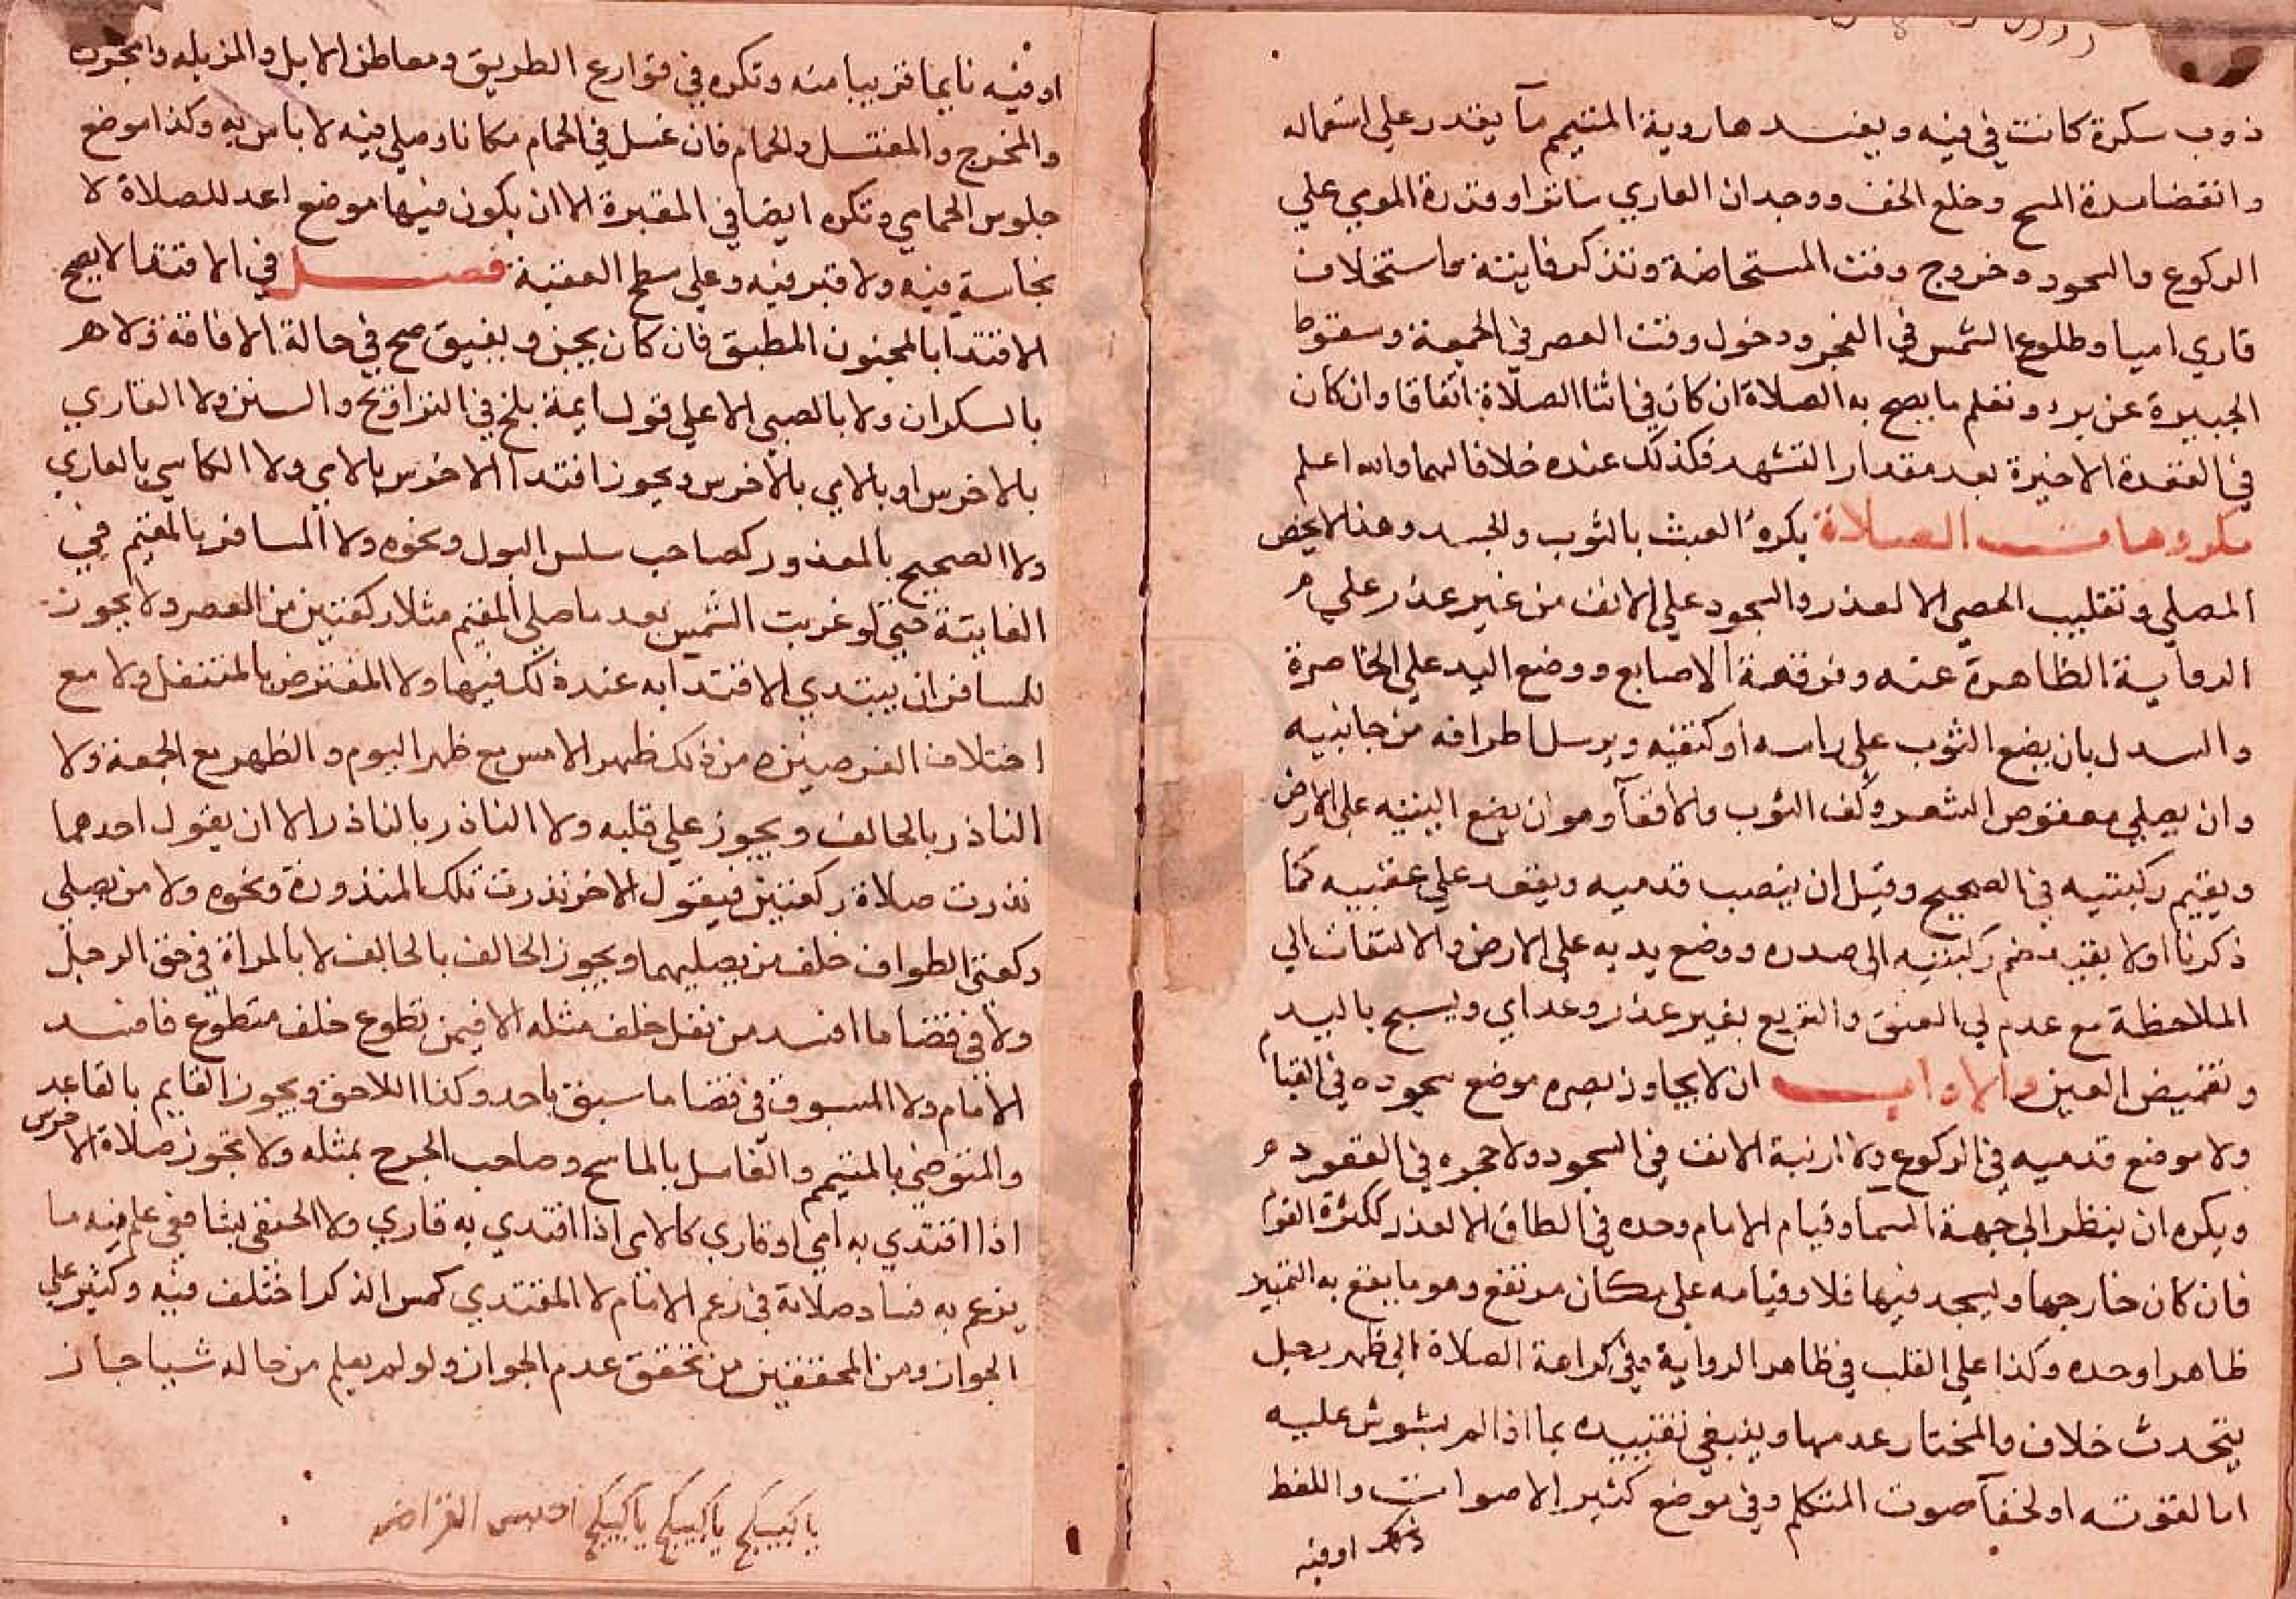 ذوب سكرة كانت في فيه ويفسدها روية المتيمم ما يقدر على استعماله
وانقضا مدة المسح وخلع الخف ووجدان العاري ساترا وقدرة المومي علي
الركوع والسجود وخروج وقت المستحاضة وتذكر فايتة واستخلاف
قاري اميا وطلوع الشمس في الفجر ودخول وقت العصر في الجمعة وسقوط
الجبيرة عن برء وتعلم ما يصح به الصلاة ان كان في اثنا الصلاة اتفاقا وان كان
في القعدة الاخيرة بعد مقدار التشهد فكذلك عنده خلافا لهما والله اعلم
مكروهات الصلاة يكره العبث بالثوب والجسد وهذا لا يخص
المصلي وتقليب الحصي الا لعذر والسجود علي الانف من غير عذر علي
الرواية الظاهرة عنه وفرقعة الاصابع ووضع اليد علي الخاصرة
والسدل بان يضع الثوب علي راسه او كتفيه ويرسل اطرافه من جانبيه
وان يصلي معقوص الشعر وكف الثوب والاقعآ وهو ان يضع اليتيه علي الارض
ويقيم ركبتيه في الصحيح وقيل ان ينصب قدميه ويقعد علي عقبيه كما
ذكرنا اولا بقيد ضم ركبتيه الي صدره ووضع يديه علي الارض والالتفات الي
الملاحظة مع عدم لي العنق والتربع بغير عذر وعد اي ويسبح باليد
وتغميض العين والاداب ان لا يجاوز بصره موضع سجوده في القيام
ولا موضع قدميه في الركوع ولا ارنبة الانف في السجود ولا حجره في القعود
ويكره ان ينظر الي جهة السما وقيام الامام وحده في الطاق الا لعذر ككثرة القوم
فان كان خارجها ويسجد فيها فلا وقيامه علي مكان مرتفع وهو ما يقع به التمييز
ظاهرا وحده وكذا علي القلب في ظاهر الرواية وفي كراهة الصلاة الي ظهر رجل
يتحدث خلاف والمختار عدمها وينبغي تقييده بما اذا لم يشوش عليه
اما لقوته او لخفآ صوت المتكلم وفي موضع كثير الاصوات واللغط
او فيه
او فيه نايما قريبا منه وتكره في قوارع الطريق ومعاطن الابل والمزبله والمجزرة
والمخرج والمغتسل والحمام فان غسل في الحمام مكانا وصلي فيه لا باس به وكذا موضع
جلوس الحمامي وتكره ايضا في المقبرة الا ان يكون فيها موضع اعد للصلاة لا
نجاسة فيه ولا قبر فيه وعلي سطح الكعبة فصل في الاقتدا لا يصح
الاقتدا بالمجنون المطبق فان كان يجن ويفيق صح في حالة الافاقة ولا
بالسكران ولا بالصبي الا علي قول ايمة بلخ في التراويح والسنن ولا القاري
بالاخرس او بالامي بالاخرس ويجوز اقتدا الاخرس بالامي ولا الكاسي بالعاري
ولا الصحيح بالمعذور كصاحب سلس البول ونحوه ولا المسافر بالمقيم في
الفايتة حتي لو غربت الشمس بعد ما صلي المقيم مثلا ركعتين من العصر ولا يجوز
للمسافر ان يبتدي الاقتدا به عند ذلك فيها ولا المفترض بالمتنفل ولا مع
اختلاف الفرضين ومن ذلك ظهر الامس مع ظهر اليوم والظهر مع الجمعة ولا
الناذر بالحالف ويجوز علي قلبه ولا الناذر بالناذر الا ان يقول احدهما
نذرت صلاة ركعتين فيقول الاخر نذرت تلك المنذورة ونحوه ولا من يصلي
ركعتي الطواف خلف من يصليهما ويجوز الحالف بالحالف لا بالمراة في حق الرجل
ولا في قضا ما افسد من نفل خلف مثله الا فيمن تطوع خلف متطوع فافسد
الامام ولا المسبوق في قضا ما سبق باحد وكذا اللاحق ويجوز القايم بالقاعد
والمتوضي بالمتيمم والغاسل بالماسح وصاحب الجرح بمثله ولا تجوز صلاة الاخرس
اذا اقتدي به امي او قاري كالامي اذا اقتدي به قاري ولا الحنفي بشافعي علم منه ما
يزعم به فساد صلاته في زعم الامام لا المقتدي كمس الذكر اختلف فيه وكثير علي
الجواز ومن المحققين من تحقق عدم الجواز ولو لم يعلم من حاله شيا جاز
يا كيبكج يا كيبكج يا كيبكج